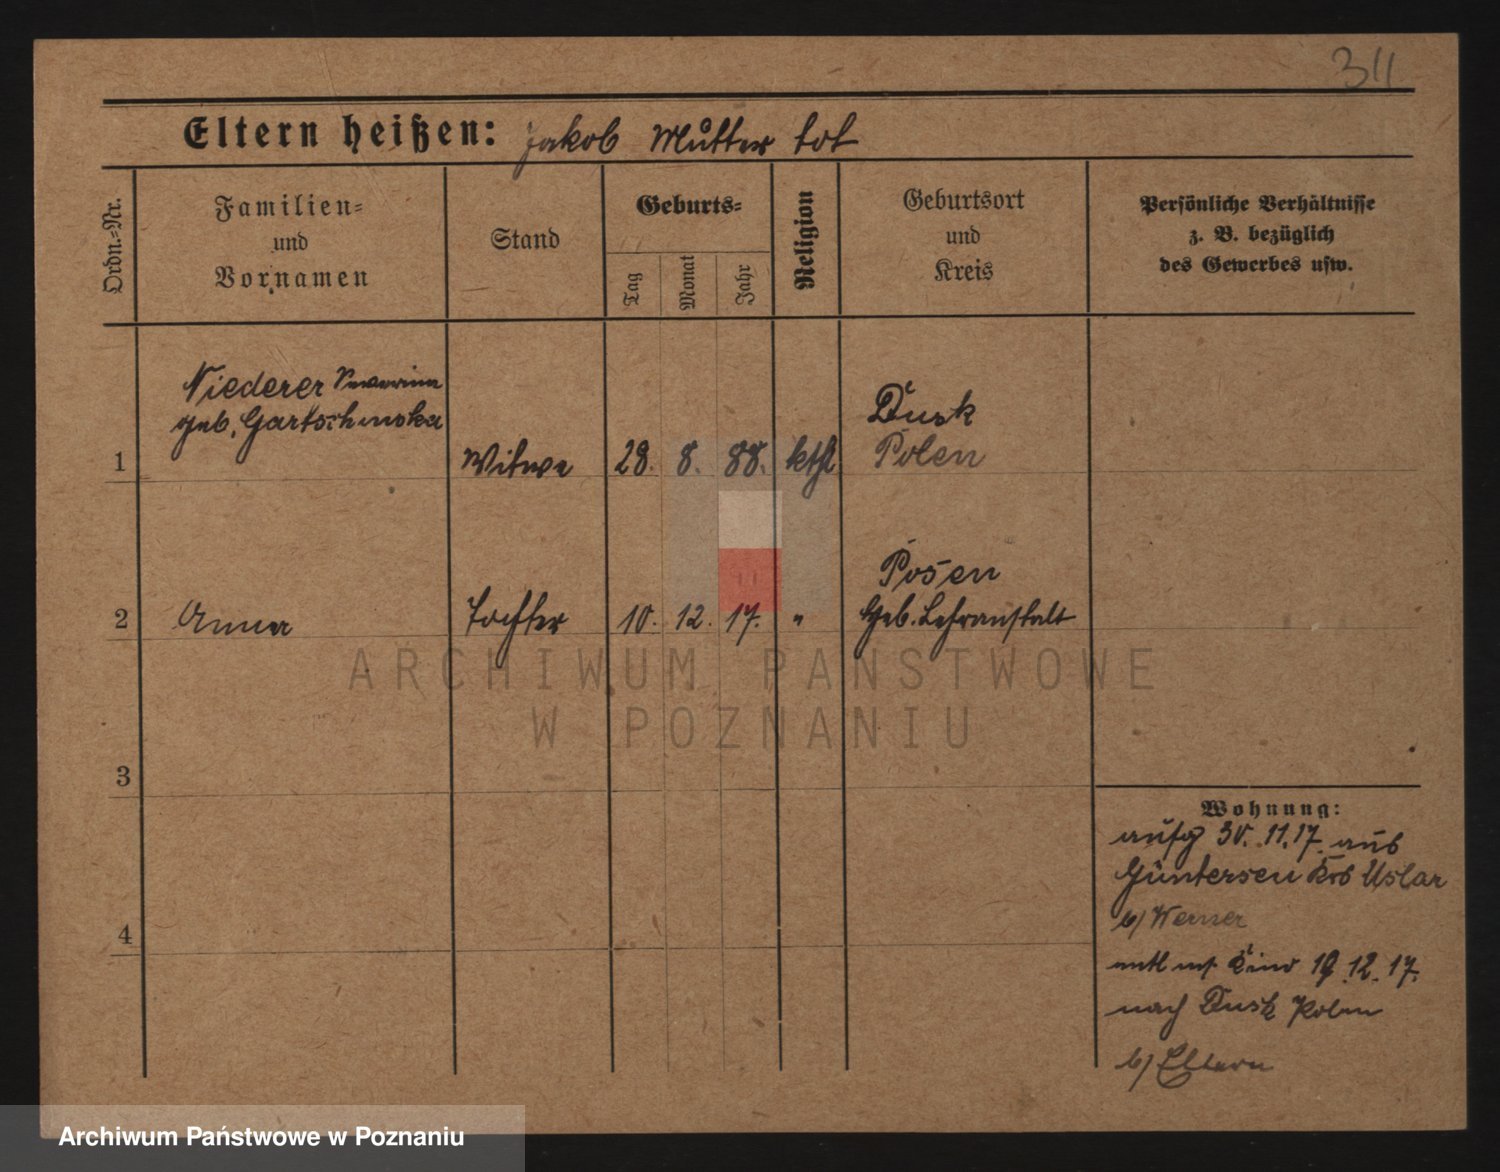 311
Eltern heißen: Jakob Mutter tot
Ordn.=Nr.
Familien=
und
Vornamen
Stand
Geburts=
Tag
Monat
Jahr
Religion
Geburtsort
und
Kreis
Persönliche Verhältnisse
z. B. bezüglich
des Gewerbes usw.
Niederer
geb. Gartschinska
1
Witwe
28. 8. 88. kthl
Dusk
Polen
2
Anna
Tochter
10. 12. 17. "
Posen
Heb. Lehranstalt
3
4
Wohnung:
aufg 30. 11. 17. aus
Güntersen Krs Uslar
b/ Werner
entl mt Kind 19. 12. 17.
nach Dusk Polen
b/ Eltern
ARCHIWUM PAŃSTWOWE
W POZNANIU
Archiwum Państwowe w Poznaniu